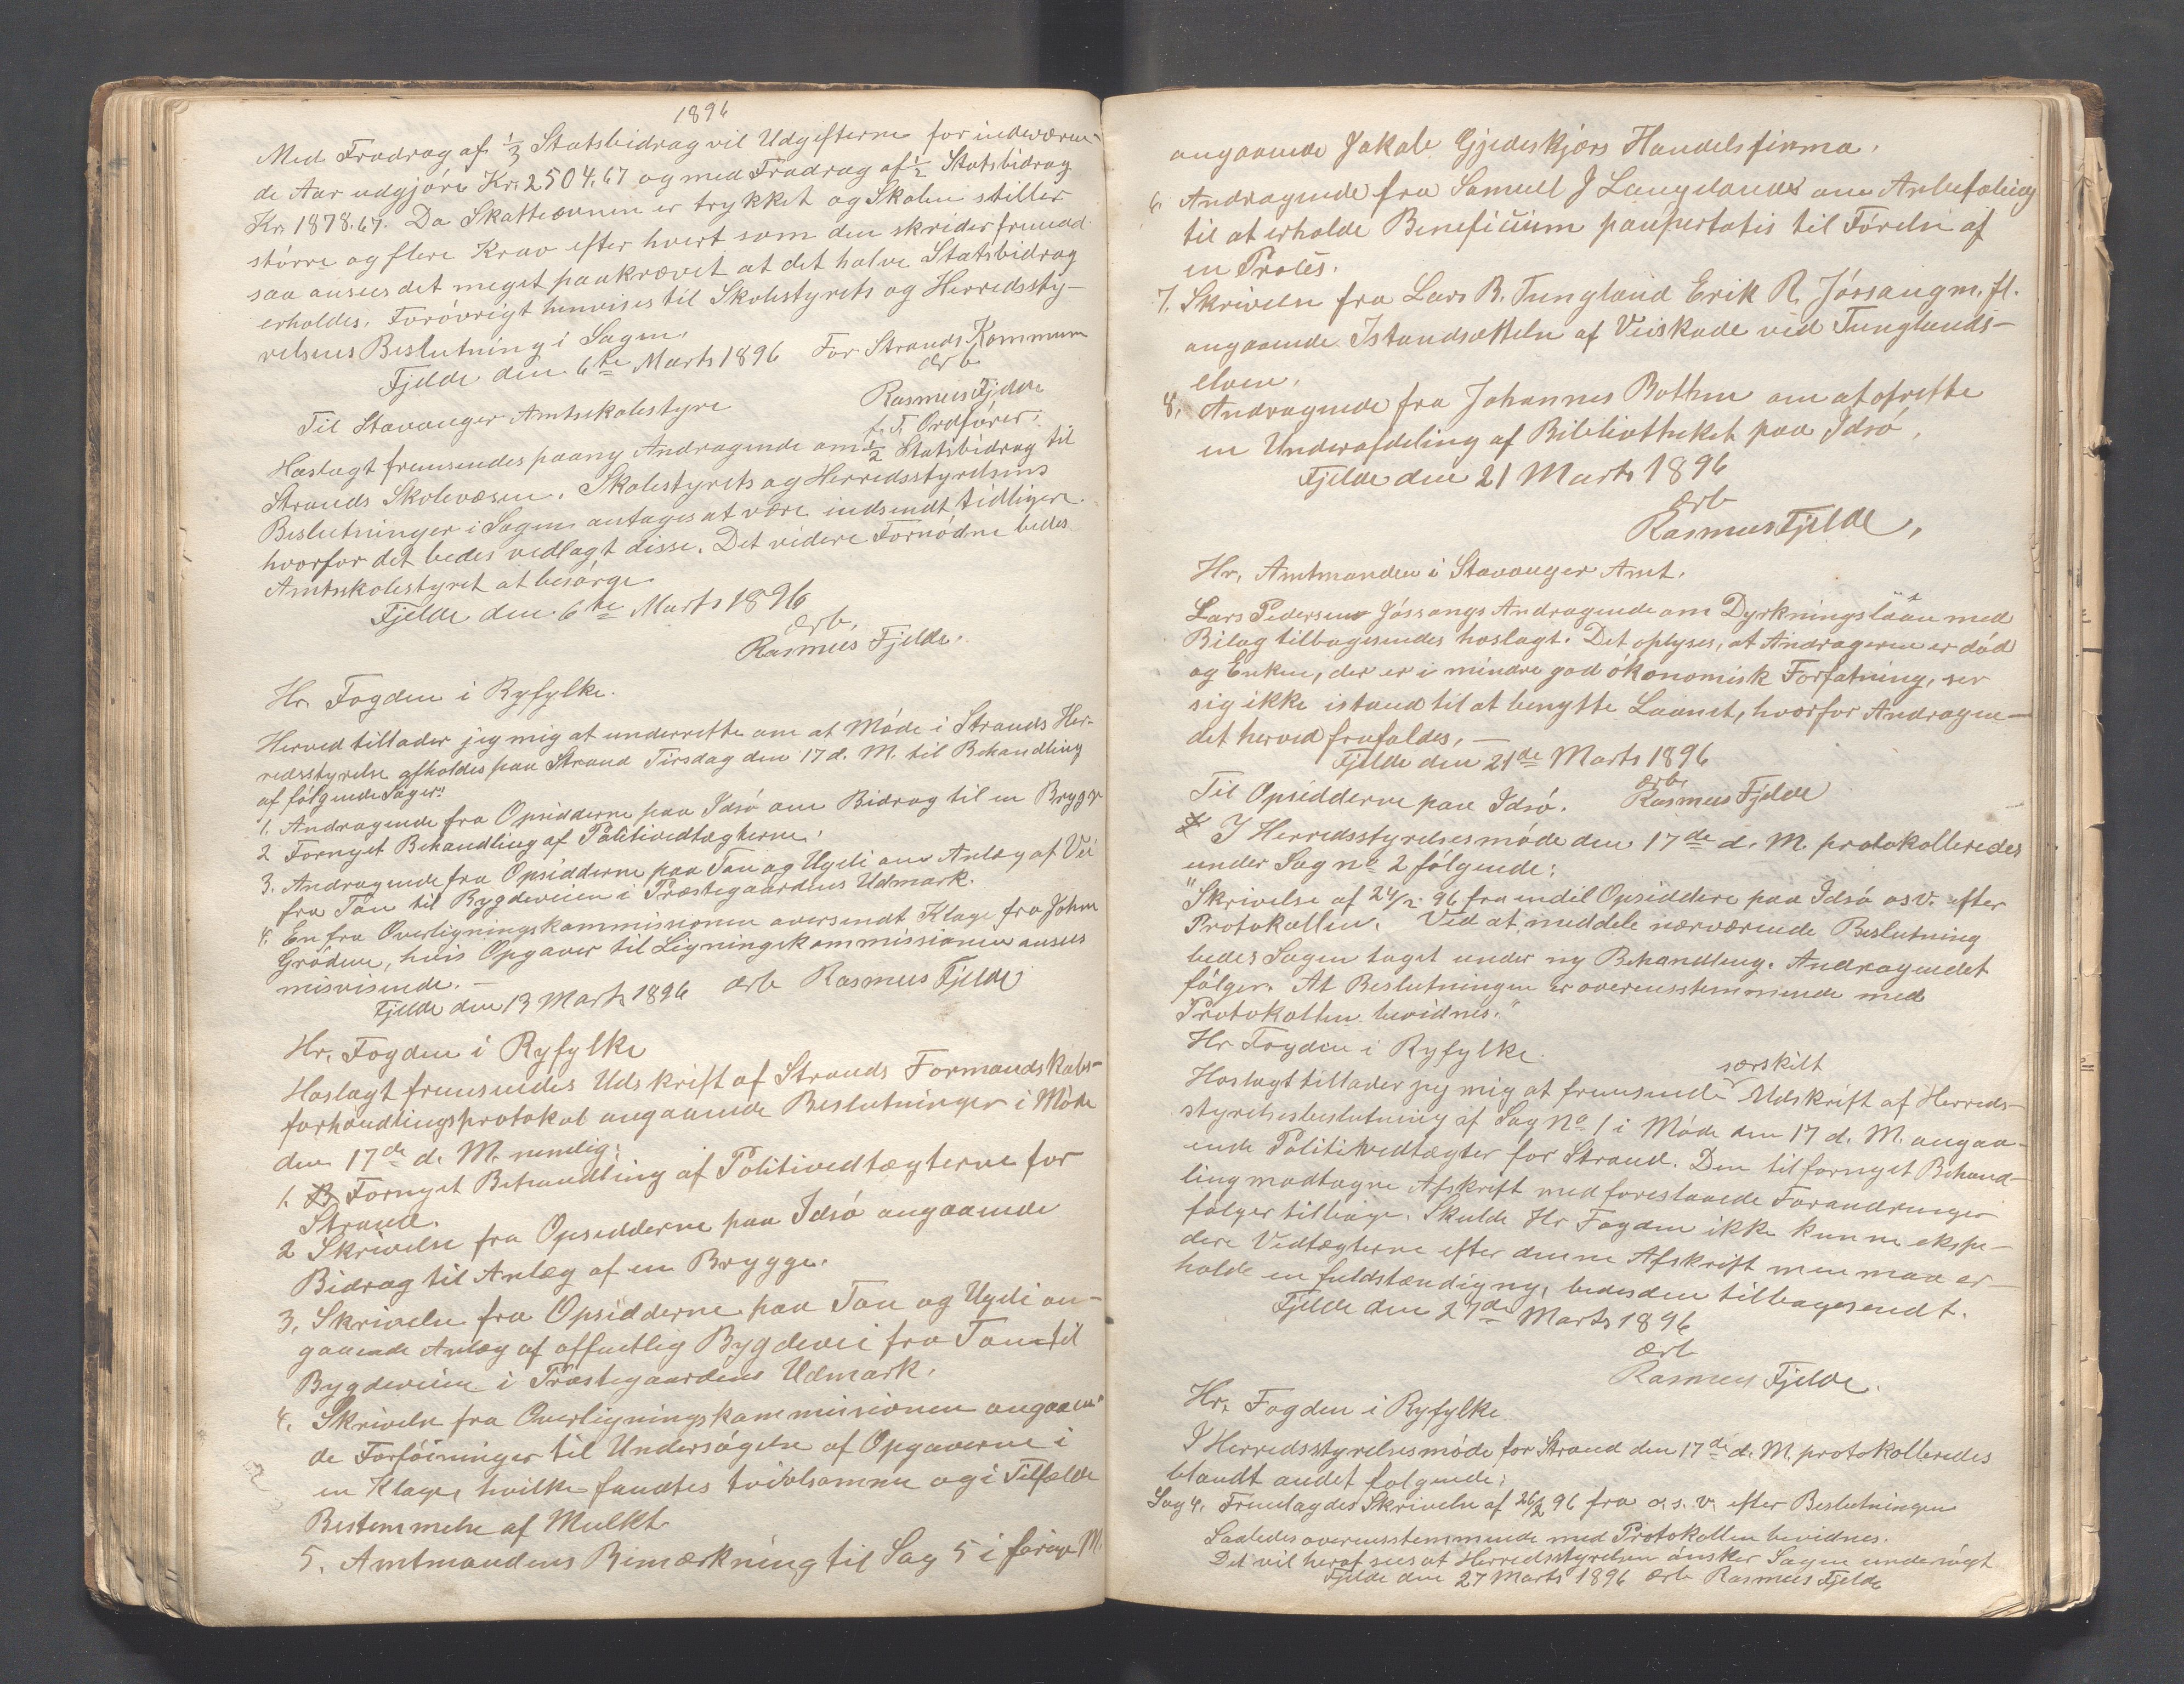 1896
Med Fradrag af 1/3 Statsbidrag vil Udgifterne for indeværen-
de Aar udgjöre Kr. 2504.67 og med Fradrag af 1/2 Statsbidrag
Kr. 1878.67. Da Skatteævnen er trykket og Skolen stiller
större og flere Krav efter hvert som den skrider fremad
saa ansees det meget paakrævet at det halve Statsbidrag
erholdes. Forövrigt henvises til Skolestyrets og Herredssty-
relsens Beslutning i Sagen.
Fjelde den 6te Marts 1896 For Strands Kommune
ærb
Rasmus Fjelde
f. T. Ordförer.
Til Stavanger Amtsskolestyre
Hoslagt fremsendes paany Andragende om 1/2 Statsbidrag til
Strands Skolevæsen. Skolestyrets og Herredsstyrelsens
Beslutninger i Sagen antages at være indsendt tidligere
hvorfor det bedes vedlagt disse. Det videre Fornödne bedes
Amtsskolestyret at besörge.
Fjelde den 6te Marts 1896
ærb.
Rasmus Fjelde.
Hr. Fogden i Ryfylke.
Herved tillader jeg mig at underrette om at Möde i Strands Her-
redsstyrelse afholdes paa Strand Tirsdag den 17 d. M. til Behandling
af fölgende Sager:
1. Andragende fra Opsidderne paa Idsö om Bidrag til en Brygge
2 Fornyet Behandling af Politivedtægterne.
3. Andragende fra Opsidderne paa Tau og Ugeli om Anlæg af Vei
fra Tau til Bygdeveien i Præstegaardens Udmark.
4. En fra Overligningskommissionen oversendt Klage fra John
Gröden, hvis Opgaver til Ligningskommissionen ansees
misvisende. –
Fjelde den 13 Marts 1896 ærb Rasmus Fjelde
Hr. Fogden i Ryfylke
Hoslagt fremsendes Udskrift af Strands Formandskabs-
forhandlingsprotokol angaaende Beslutninger i Möde
den 17de d. M. nemlig:
1. Fornyet Behandling af Politivedtægterne for
Strand.
2 Skrivelse fra Opsidderne paa Idsö angaaende
Bidrag til Anlæg af en Brygge.
3. Skrivelse fra Opsidderne paa Tau og Ugeli an-
gaaende Anlæg af offentlig Bygdevei fra Tau til
Bygdeveien i Præstegaardens Udmark.
4. Skrivelse fra Overligningskommissionen angaaen-
de Forföininger til Undersögelse af Opgaverne i
en Klage, hvilke fandtes tvivlsomme og i Tilfælde
Bestemmelse af Mulkt
5. Amtmandens Bemærkning til Sag 5 i forige M.
angaaende Jakob Gjedeskjærs Handelsfirma.
6. Andragende fra Samuel J Laugelands om Anbefaling
til at erholde Beneficium paupertatis til Förelse af
en Proces.
7. Skrivelse fra Lars B. Tungland Erik R. Jössang m. fl.
angaaende Istandsættelse af Veiskade ved Tunglands-
elven.
8. Andragende fra Johannes Bothne om at oprette
en Underafdeling af Bibliotheket paa Idsö.
Fjelde den 21 Marts 1896
ærb
Rasmus Fjelde.
Hr. Amtmanden i Stavanger Amt.
Lars Pedersens Jössangs Andragende om Dyrkningslaan med
Bilag tilbagesendes hoslagt. Det oplyses, at Andrageren er död
og Enken, der er i mindre god ökonomisk Forfatning, ser
sig ikke istand til at benytte Laanet, hvorfor Andragen-
det herved frafaldes. –
Fjelde den 21de Marts 1896
ærb.
Til Opsidderne paa Idsö. Rasmus Fjelde
I Herredsstyrelsesmöde den 17de d. M. protokolleredes
under Sag no 2 fölgende:
"Skrivelse af 24/2 96 fra endel Opsiddere paa Idsö osv. efter
Protokollen. Ved at meddele nærværende Beslutning
bedes Sagen taget under ny Behandling. Andragendet
fölger. At Beslutningen er overensstemmende med
Protokollen bevidnes."
Hr Fogden i Ryfylke.
særskilt
Hoslagt tillader jeg mig at fremsende Udskrift af Herreds-
styrelsesbeslutning af Sag No 1 i Möde den 17 d. M. angaa-
ende Politivedtægter for Strand. Den til fornyet Behand-
ling modtagne Afskrift med foreslaaede Forandringer
fölger tilbage. Skulde Hr Fogden ikke kunne ekspe-
dere Vedtægterne efter denne Afskrift men maa er-
holde en fuldstændig ny, bedes den tilbagesendt.
Fjelde den 27de Marts 1896
ærb
Rasmus Fjelde.
Hr. Fogden i Ryfylke
I Herredsstyrelsesmöde for Strand den 17de d. M. protokolleredes
blandt andet følgende:
Sag 4. Fremlagdes Skrivelse af 26/2 96 fra o. s. v. efter Beslutningen
Saaledes overensstemmende med Protokollen bevidnes.
Det vil heraf sees at Herredsstyrelsen önsker Sagen undersögt
Fjelde den 27 Marts 1896 ærb Rasmus Fjelde